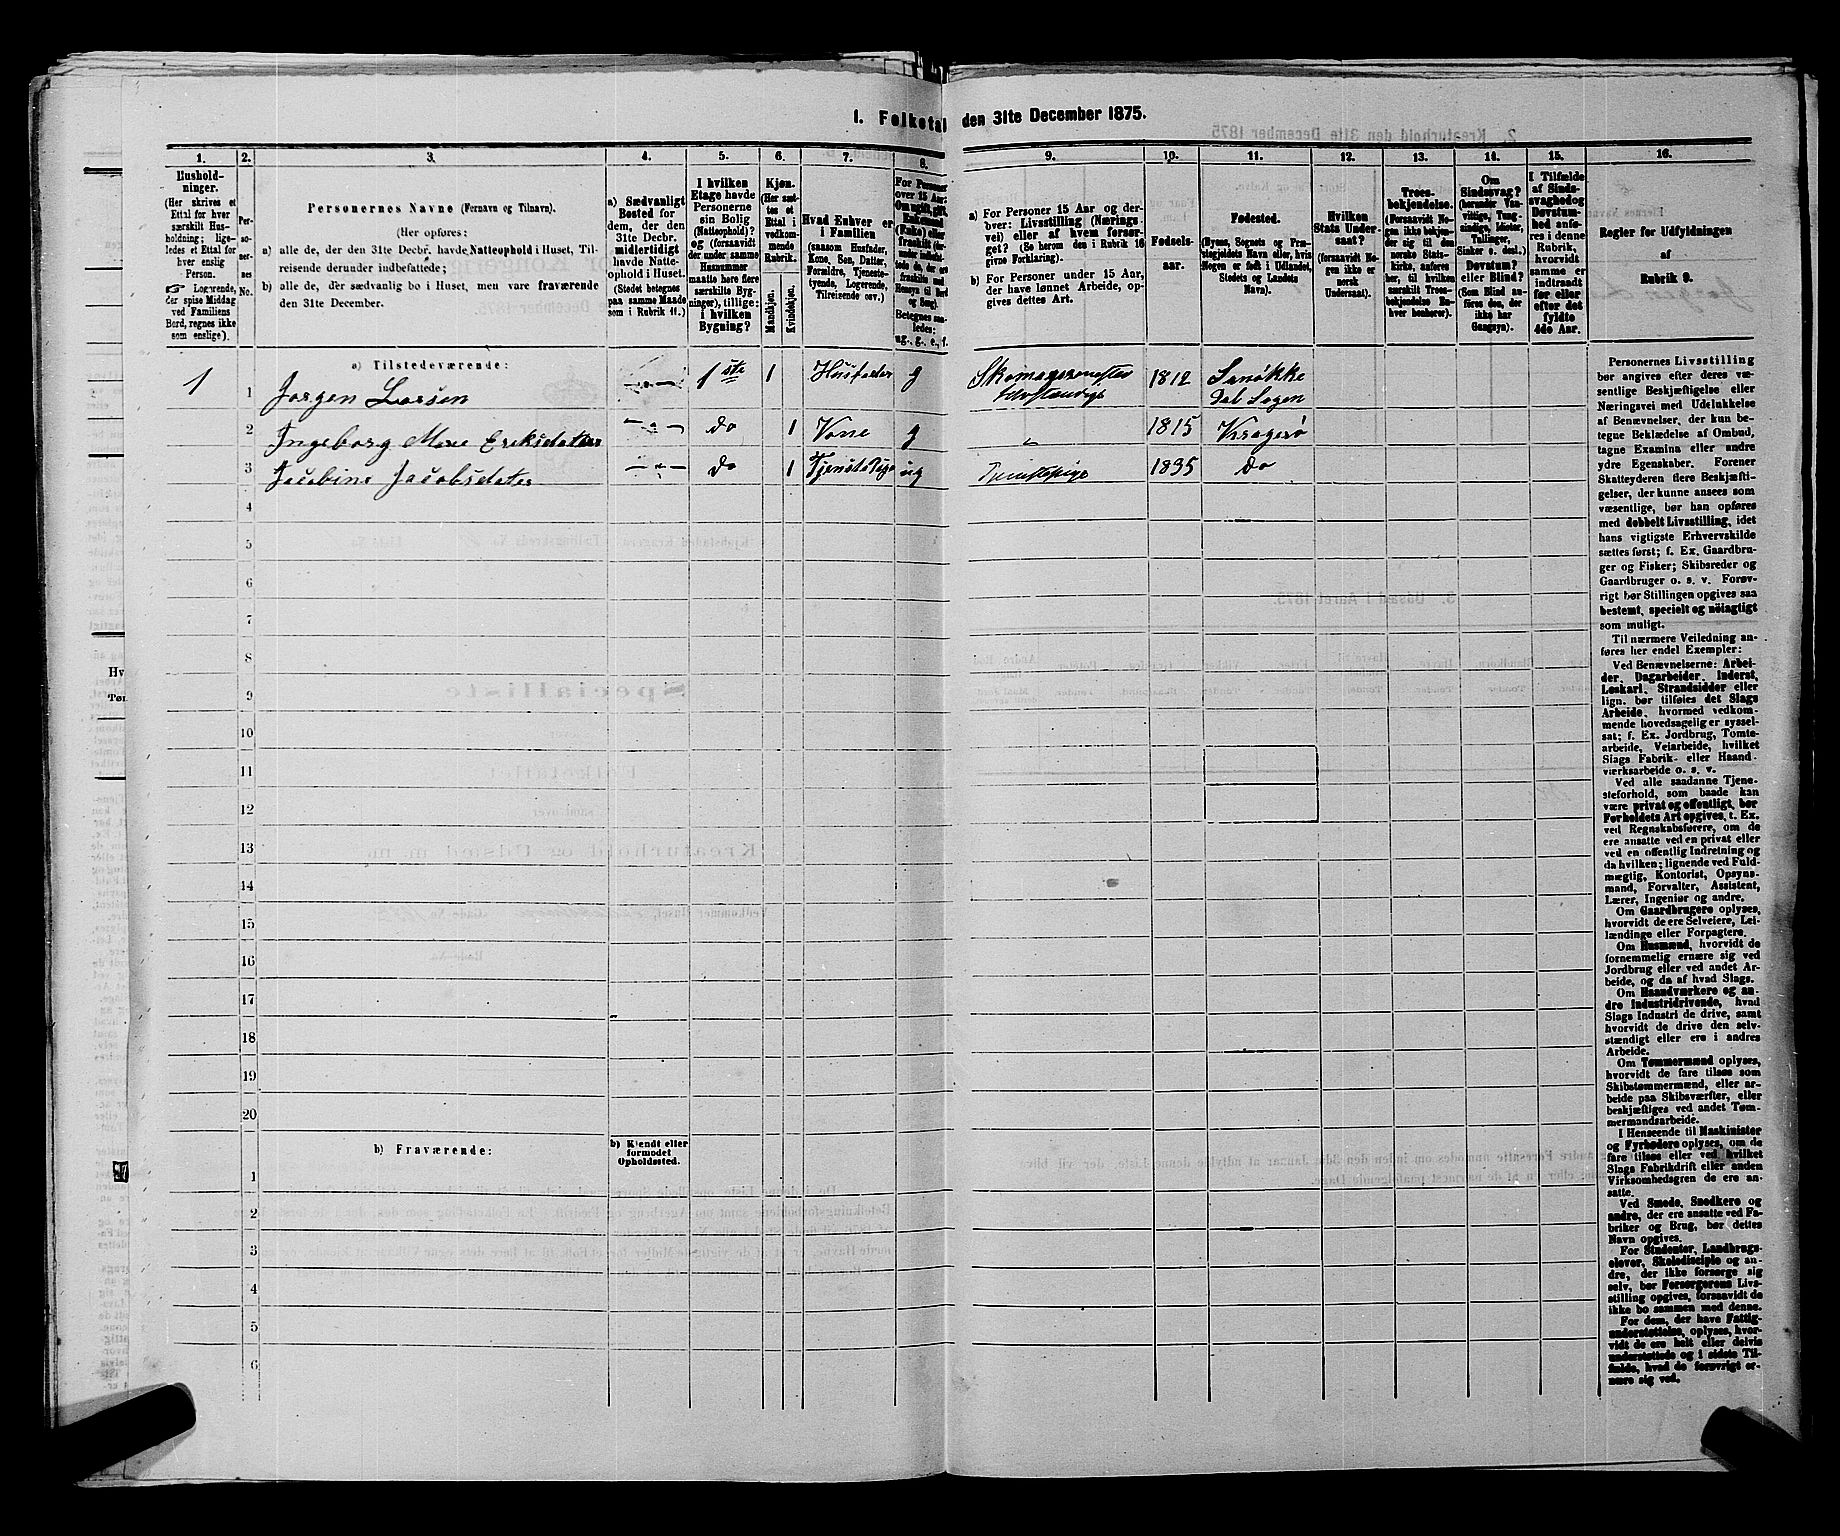 1. Folketal den 31te December 1875.
1.
2.
3.
4.
5.
6.
7.
8.
9.
10.
11.
12.
13.
14.
15.
16.
Hushold-
ninger.
(Her skrives et
Ettal for hver
særskilt Hus-
holdning; lige-
ledes et Ettal for
hver enslig
Person.
☞ Logerende,
der spise Middag
ved Familiens
Bord, regnes ikke
som enslige).
Per-
so-
ner-
nes
No.
Personernes Navne (Fornavn og Tilnavn).
(Her opføres:
a) alle de, der den 31te Decbr. havde Natteophold i Huset, Til-
reisende derunder indbefattede;
b) alle de, der sædvanlig bo i Huset, men vare fraværende
den 31te December.
a) Sædvanligt
Bosted for
dem, der den
31te Decbr.
midlertidigt
havde Natte-
ophold i Huset.
(Stedet betegnes
paa samme Maade
som i Rubrik 11.)
I hvilken
Etage havde
Personerne
sin Bolig
(Natteophold)?
og (forsaavidt
der under samme
Husnummer
maatte høre flere
særskilte Byg-
ninger), tillige:
i hvilken
Bygning?
Kjøn.
(Her sæt-
tes et
Ettal i
vedkom-
mende
Rubrik.
Mandkjøn.
Kvindekjøn.
Hvad Enhver er
i Familien
(saasom Husfader,
Kone, Søn, Datter,
Forældre, Tjeneste-
tyende, Logerende,
Tilreisende osv.)
For Personer
over 15 Aar:
Om ugift, gift,
Enkemand
(Enke) eller
fraskilt
Betegnes saa-
ledes:
ug., g., e., f.
a) For Personer 15 Aar og der-
over: Livsstilling (Nærings-
vei) eller af hvem forsør-
get? (Se herom den i Rubrik 16
givne Forklaring).
b) For Personer under 15 Aar,
der have lønnet Arbeide, op-
gives dettes Art.
Fødsels-
aar.
Fødested.
(Byens, Sognets og Præ-
stegjeldets Navn eller, hvis
Nogen er født i Udlandet,
Stedets og Landets
Navn).
Hvilken
Stats Under-
saat?
(forsaavidt No-
gen ikke er
norsk
Undersaat).
Troes-
bekjendelse.
(Forsaavidt No-
gen ikke bekjen-
der sig til den
norske Stats-
kirke, anføres
her, til hvilken
særskilt Troes-
bekjendelse En-
hver henhører).
Om
Sindssvag?
(herunder Van-
vittige, Tung-
sindige, Idioter,
Tullinger,
Sinker o. desl.)
Døvstum?
eller Blind?
(Som Blind an-
føres den, der
ikke har
Gangsyn).
I Tilfælde
af Sinds-
svaghed og
Døvstum-
hed anfø-
res i denne
Rubrik,
hvorvidt
samme er
indtraadt
før eller
efter det
fyldte
4de Aar.
Regler for Udfyldningen
af
Rubrik 9.
a) Tilstedeværende:
1 1 Jørgen Larsen 1ste 1 Husfader g Skomagermester 1812 Sanøkke
selvstændigt dal Sogn
2 Ingeborg Marie Eriksdatter do 1 Kone g 1815 Kragerø
3 Jacobine Jacobsdatter do 1 ug 1835 Do
4
5
6
7
8
9
10
11
12
13
14
15
16
17
18
19
20
b) Fraværende:
b) Kjendt eller
formodet
Opholdssted.
1
2
3
4
5
6
Personernes Livsstilling
bør angives efter deres væ-
sentlige Beskjæftigelse eller
Næringsvei med Udelukkelse
af Benævnelser, der kun be-
tegne Beklædelse af Ombud,
tagne Examina eller andre
ydre Egenskaber. Forener
Skatteyderen flere Beskjæfti-
gelser, der kunne ansees som
væsentlige, bør han opføres
med dobbelt Livsstilling, idet
hans vigtigste Erhvervskilde
sættes først; f. Ex. Gaardbru-
ger og Fisker; Skibsreder og
Gaardbruger o. s. v. Forøv-
rigt bør Stillingen opgives saa
bestemt, specielt og nöiagtigt
som muligt.
Til nærmere Veiledning an-
føres her endel Exempler:
Ved Benævnelserne: Arbei-
der, Dagarbeider, Inderst,
Løskarl, Strandsidder eller
lign. bør tilføies det Slags
Arbeide, hvormed vedkom-
mende hovedsagelig er syssel-
sat; f. Ex. Jordbrug, Tomte-
arbeide, Veiarbeide, hvilket
Slags Fabrik- eller Haand-
værksarbeide o. s. v.
Ved alle saadanne Tjene-
steforhold, som baade kan
være privat og offentligt, bør
Forholdets Art opgives, t. Ex.
ved Regnskabsførere, om de
ere ansatte ved en privat eller
ved en offentlig Indretning og
da hvilken; lignende ved Fuld-
mægtig, Kontorist, Opsyns-
mand, Forvalter, Assistent,
Lærer, Ingeniør og andre.
Om Gaardbrugere oplyses,
hvorvidt de ere Selveiere, Lei-
lændinge eller Forpagtere.
Om Husmænd, hvorvidt de
fornemmelig ernære sig ved
Jordbrug eller ved andet Ar-
beide, og da af hvad Slags.
Om Haandværkere og an-
dre Industridrivende, hvad
Slags Industri de drive, samt
hvorvidt de drive den selv-
stændigt eller ere i andres
Arbeide.
Om Tømmermænd oplyses,
hvorvidt de fare tilsøs som
Skibstømmermænd, eller ar-
beide paa Skibsværfter, eller
beskjæftiges ved andet Tøm-
mermandsarbeide.
I Henseende til Maskinister
og Fyrbødere oplyses, om de
fare tilsøs eller ved hvilket
Slags Fabrikdrift eller anden
Virksomhedsgren de ere an-
satte.
Ved Smede, Snedkere og
andre, der ere ansatte ved Fa-
briker og Brug, bør dettes
Navn opgives.
For Studenter, Landbrugs-
elever, Skoledisciple og an-
dre, der ikke forsørge sig
selv, bør Forsørgerens Livs-
stilling opgives, forsaavidt de
ikke bo sammen med denne.
For dem, der have Fattig-
understøttelse, oplyses, hvor-
vidt de ere helt eller delvis
understøttede og i sidste Til-
fælde, hvad de forøvrigt er-
nære sig ved.